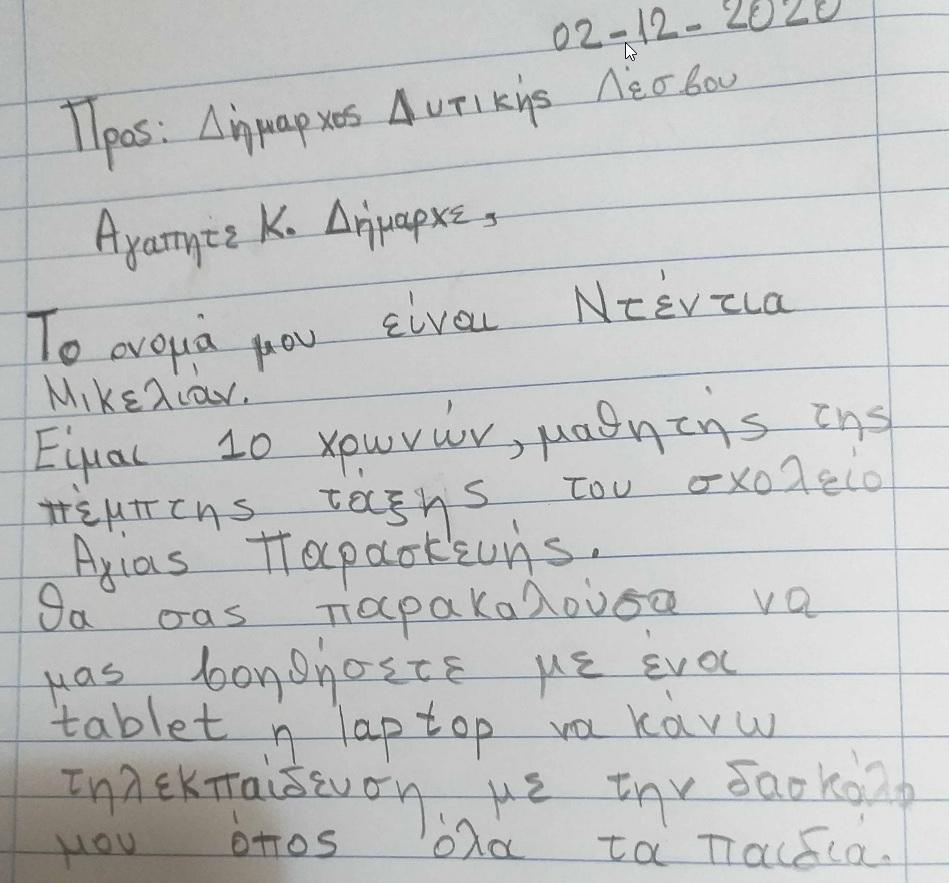 02-12-2020
Προς: Δήμαρχος Δυτικής Λέσβου
Αγαπητέ Κ. Δήμαρχε,
Το ονομά μου είναι Ντέντια
Μικελιάν.
Είμαι 10 χρωνών, μαθητής της
πέμπτης τάξης του σχολείο
Αγίας Παρασκευής.
θα σας παρακαλούσα να
μας βοηθήσετε με ένα
tablet η laptop να κάνω
τηλεκπαίδευση με την δασκάλα
μου όπος όλα τα παιδιά.